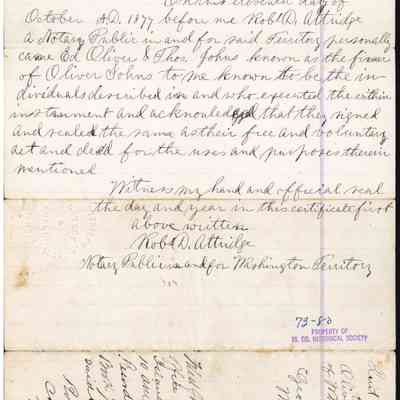 On this eleventh day of
October A.D. 1877 before me Robt D. Attridge
a Notary Public in and for said Territory personally
came Ed. Oliver & Thos. Johns known as the firm
of Oliver Johns to me known to be the in
dividuals described in and who executed the within
instrument and acknowledged that they signed
and sealed the same as their free and voluntary
act and deed for the uses and purposes therein
mentioned
Witness my hand and official seal
the day and year in this certificate first
above written
Robt D. Attridge
Notary Public in and for Washington Territory
73-80
PROPERTY OF
IS. CO. HISTORICAL SOCIETY